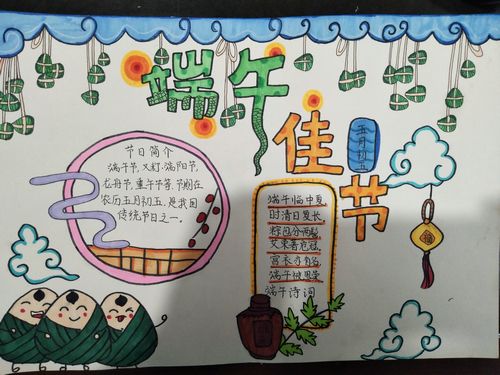 端午
佳节
五月初五
节日简介
端午节,又叫端阳节,
龙舟节,重午节等,节期在
农历五月初五,是我国
传统节日之一。
端午临中夏,
时清日复长。
粽包分两髻,
艾束著危冠。
宫衣亦有名,
端午被恩荣
端午诗词
福